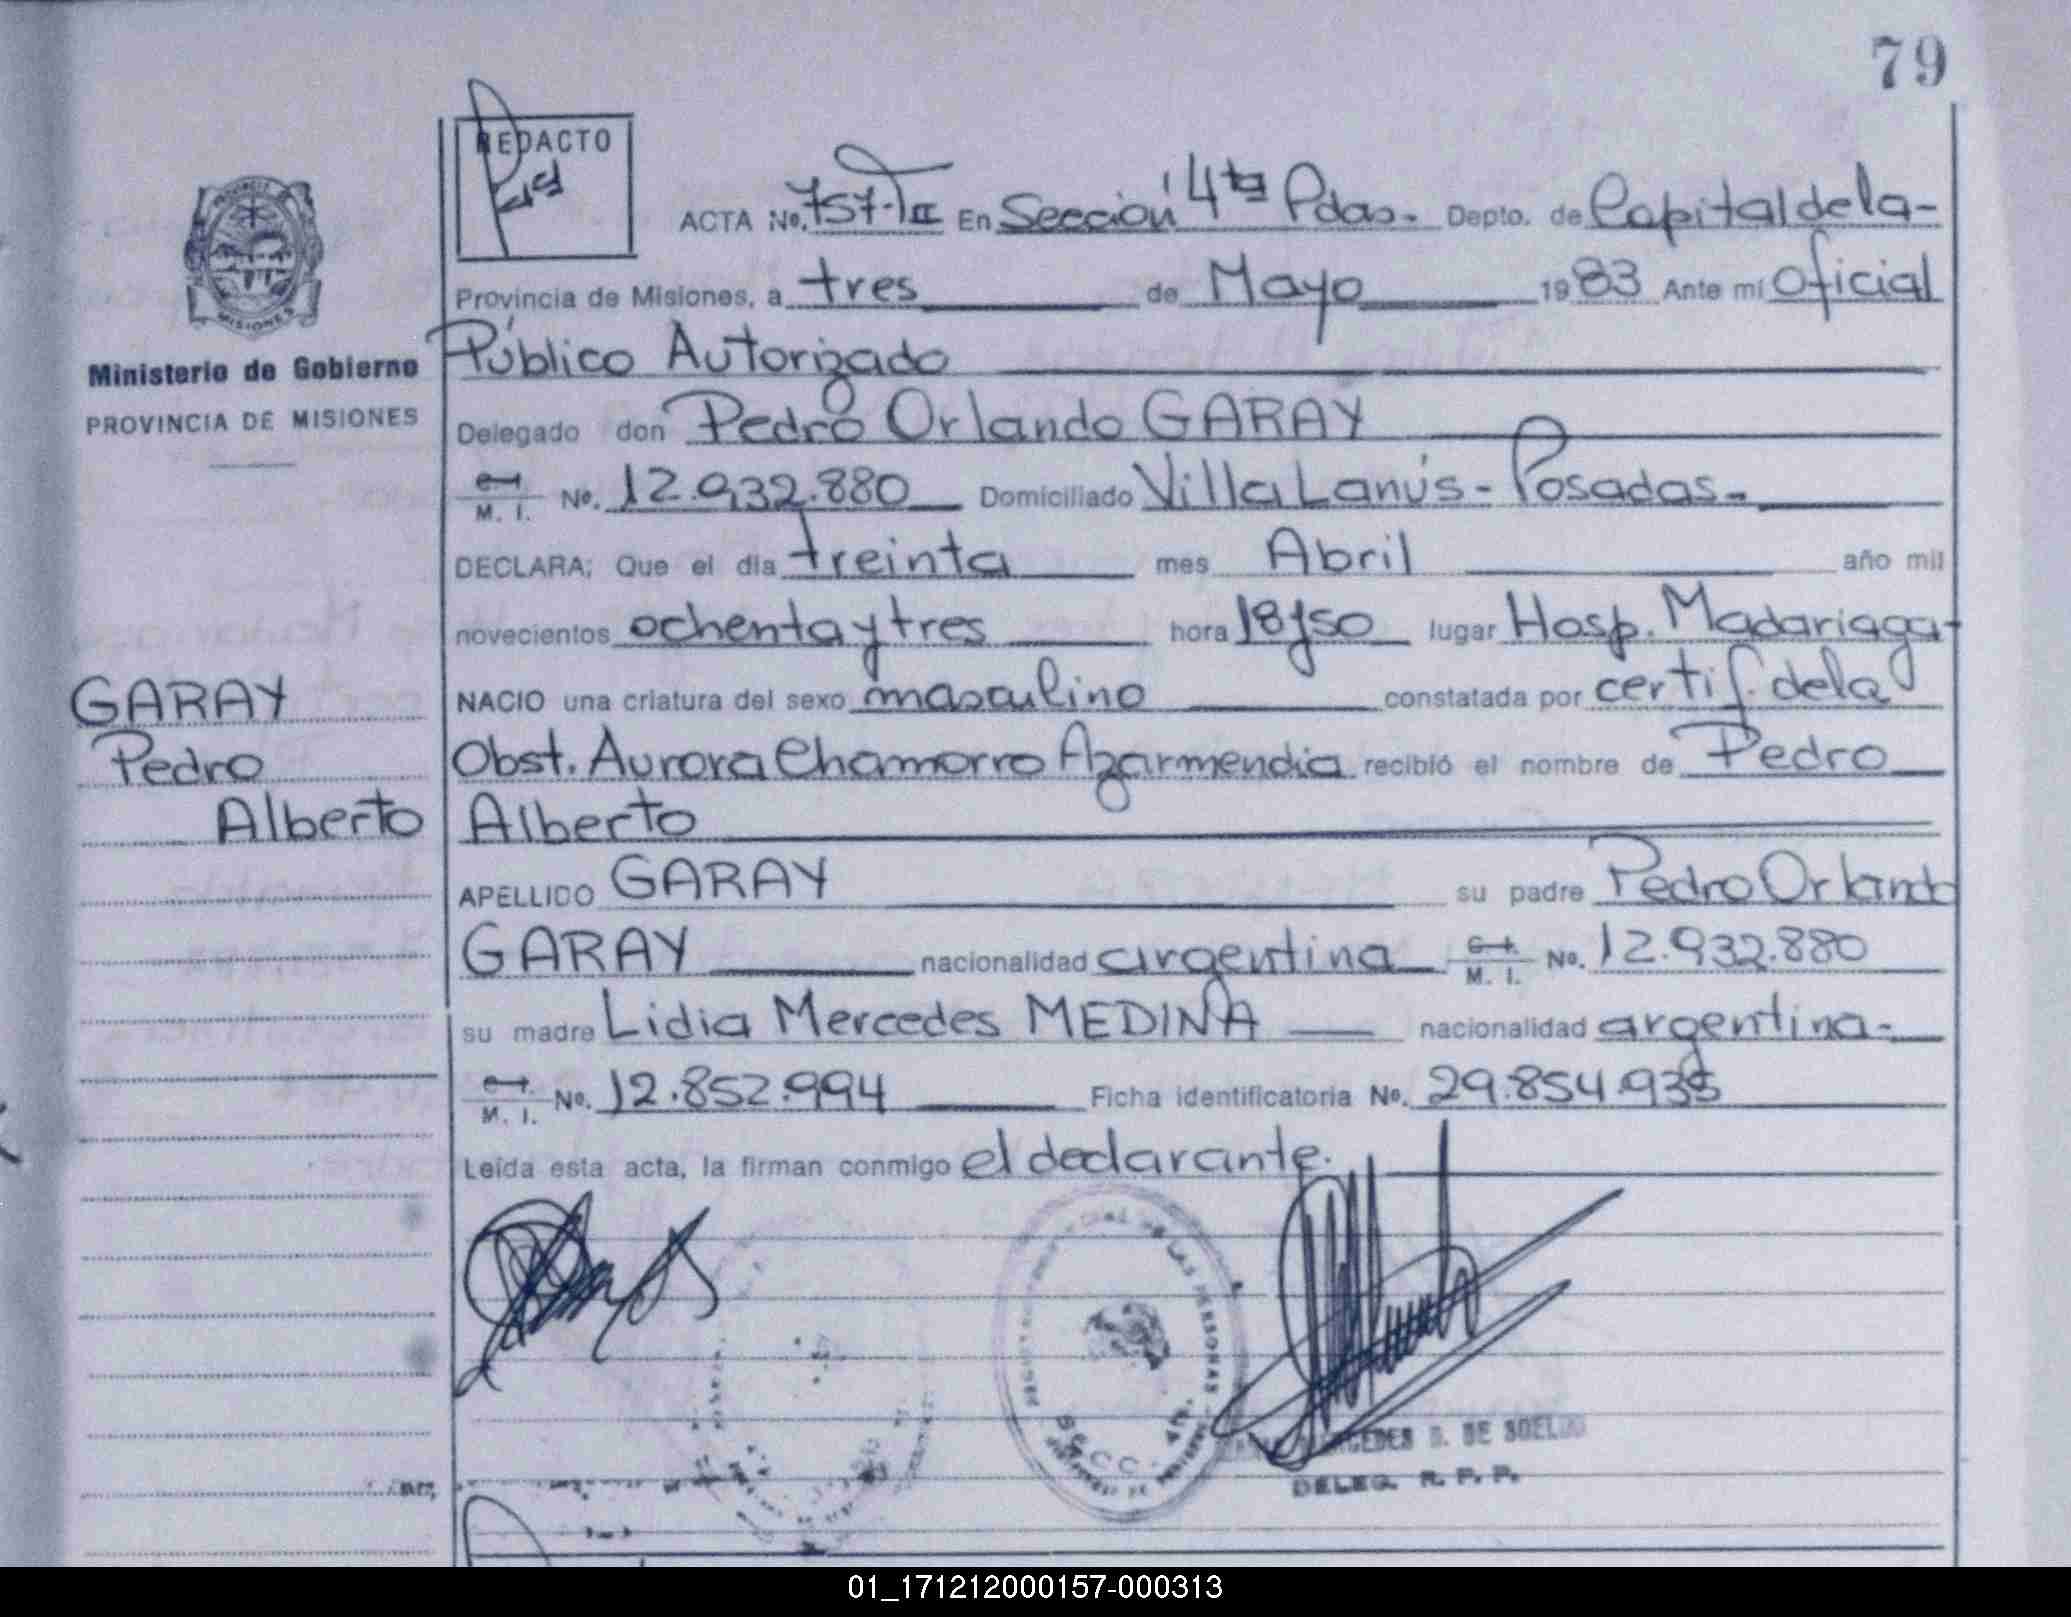 79
REDACTO
ACTA No. 757-T II En Sección 4ta Pdas. Depto. de Capital de la-
Provincia de Misiones, a tres de Mayo 1983 Ante mí Oficial
Público Autorizado
Ministerio de Gobierno
PROVINCIA DE MISIONES
MISIONES
Delegado don Pedro Orlando GARAY
M. I. No. 12.932.880 Domiciliado Villa Lanús - Posadas.
DECLARA; Que el dia treinta mes Abril año mil
novecientos ochenta y tres hora 18y50 lugar Hosp. Madariaga-
NACIO una criatura del sexo masculino constatada por certif. de la
Obst. Aurora Chamorro Azarmendia recibió el nombre de Pedro
Alberto
GARAY
Pedro
Alberto
APELLIDO GARAY su padre Pedro Orlando
GARAY nacionalidad argentina M. I. No. 12.932.880
su madre Lidia Mercedes MEDINA nacionalidad argentina.-
M. I. No. 12.852.994 Ficha identificatoria No. 29.854.935
Leída esta acta, la firman conmigo el declarante.
DE LAS PERSONAS
SECC. 4ta.
DE SOELI
DELEG. R. P. P.
01_171212000157-000313